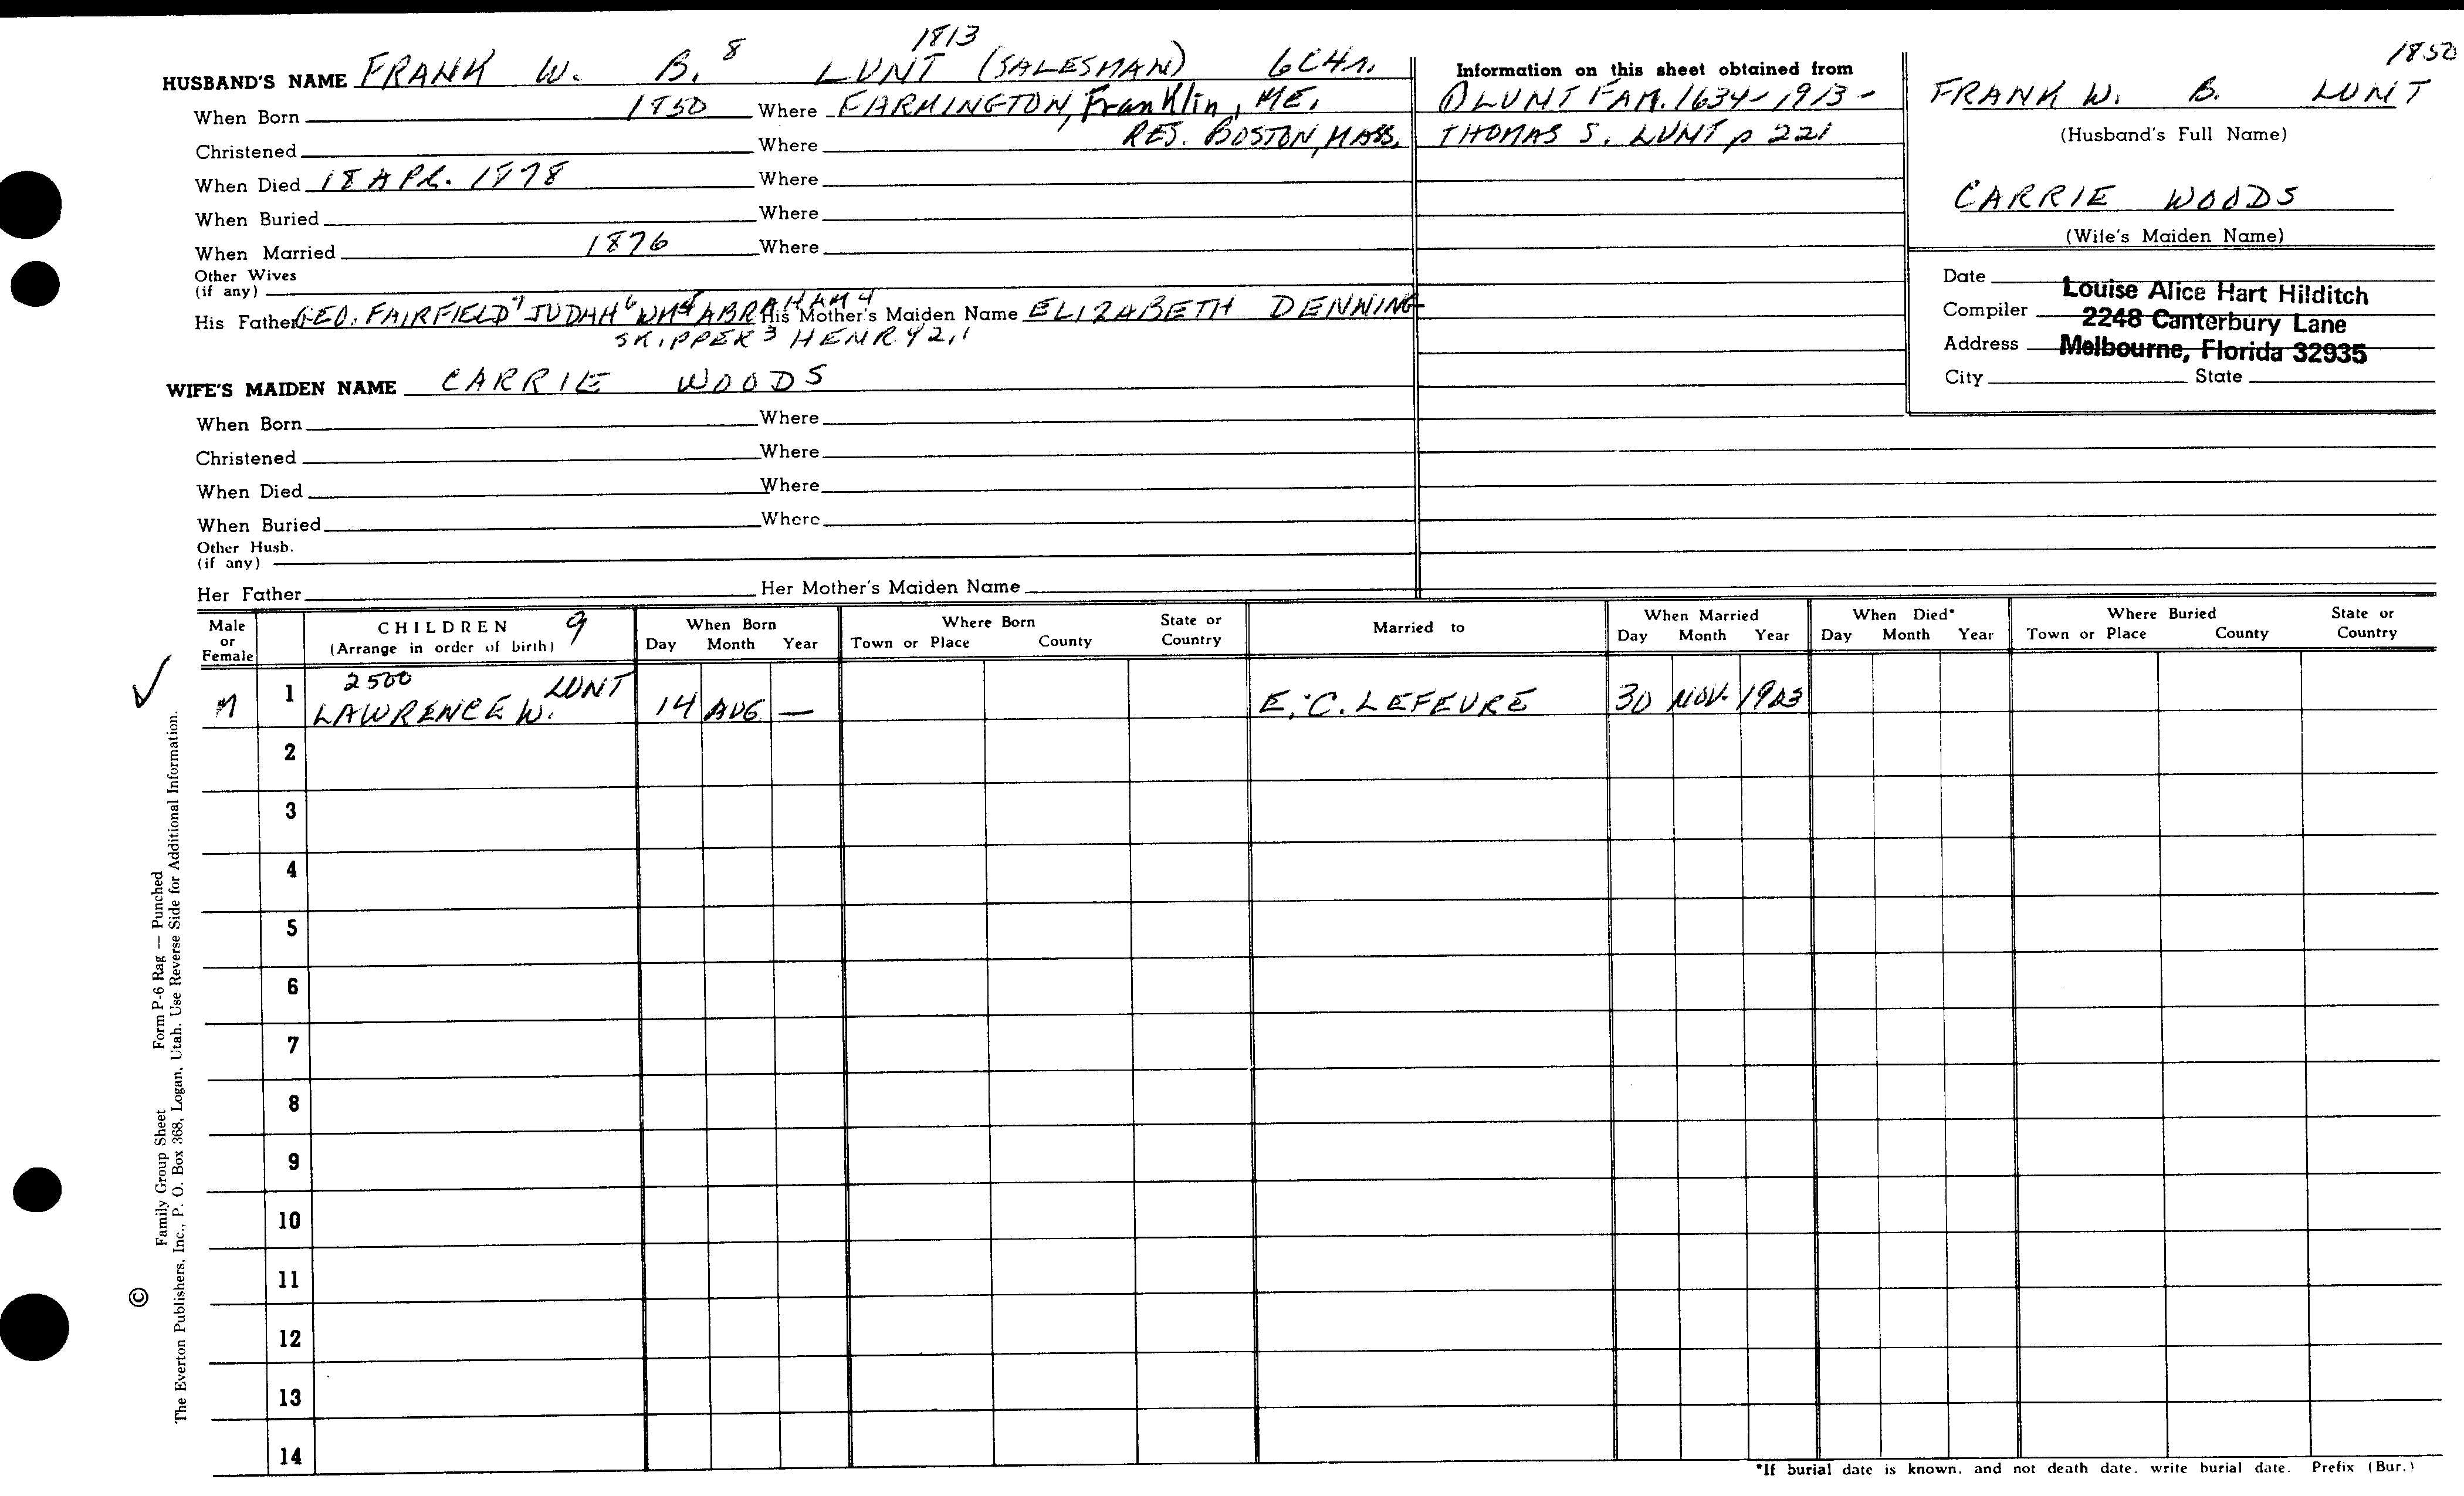 1813
1850
HUSBAND'S NAME FRANK W. B.8 LUNT (SALESMAN) 6 CH.
When Born 1850 Where FARMINGTON, Franklin, ME.
Christened Where RES. BOSTON, MASS.
When Died 18 APR. 1878 Where
When Buried Where
When Married 1876 Where
Other Wives
(if any)
His Father GEO. FAIRFIELD7 JUDAH6 WM5 ABRAHAM4 His Mother's Maiden Name ELIZABETH DENNING
SKIPPER3 HENRY2,1
WIFE'S MAIDEN NAME CARRIE WOODS
When Born Where
Christened Where
When Died Where
When Buried Where
Other Husb.
(if any)
Her Father Her Mother's Maiden Name
Information on this sheet obtained from
① LUNT FAM. 1634-1913-
THOMAS S. LUNT p 221
FRANK W. B. LUNT
(Husband's Full Name)
CARRIE WOODS
(Wife's Maiden Name)
Date
Louise Alice Hart Hilditch
Compiler 2248 Canterbury Lane
Address Melbourne, Florida 32935
City State
Male or Female
CHILDREN 9
(Arrange in order of birth)
When Born
Day Month Year
Where Born
Town or Place County
State or Country
Married to
When Married
Day Month Year
When Died*
Day Month Year
Where Buried
Town or Place County
State or Country
✓
2500
M 1 LAWRENCE W. LUNT 14 AUG — E. C. LEFEVRE 30 NOV. 1903
2
3
4
5
6
7
8
9
10
11
12
13
14
*If burial date is known, and not death date, write burial date. Prefix (Bur.)
© Family Group Sheet Form P-6 Rag — Punched
The Everton Publishers, Inc., P. O. Box 368, Logan, Utah. Use Reverse Side for Additional Information.